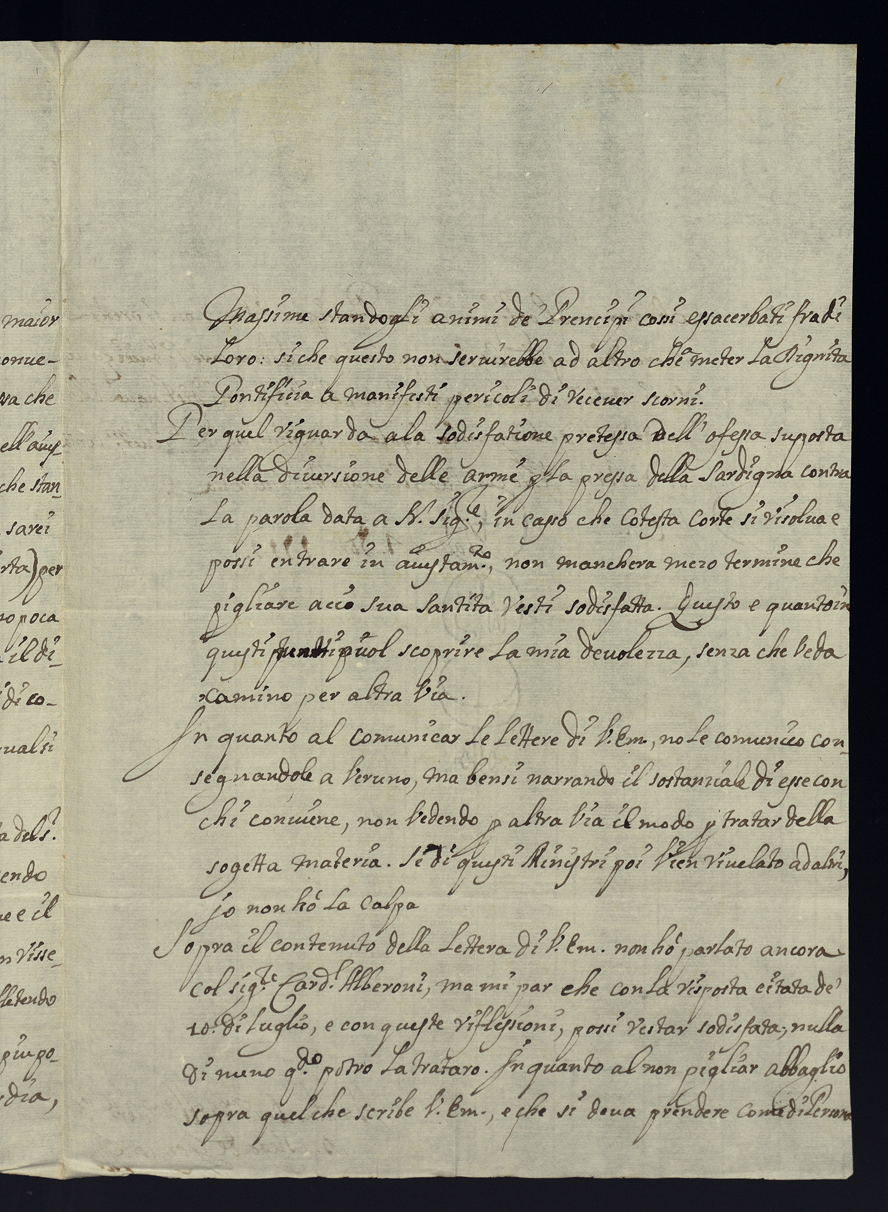 maior
Massime standogli animi de' Prencipi cosi essacerbati fra di
onue-
Loro: siche questo non seruirebbe ad altro che meter La Dignita
sa che
Pontificia a manifesti pericoli di receuer scorni.
Per quel riguarda ala sodisfatione pretessa dell' ofessa suposta
che stan
nella diuersione delle arme p La pressa della Sardigna contra
sarei
La parola data a N. Sig.re, in casso che cotesta Corte si risolua e
rta) per
possi entrare in aiustam.to, non manchera mezo termine che
no poca
pigliare acciò sua Santita resti sodisfatta. Questo e quanto in
a il di-
questi puol scoprire La mia deuolezza, senza che Veda
di co-
camino per altra Via.
ualsi
In quanto al comunicar Le Lettere di V. Em., no Le comunico con-
segnandole a Veruno, ma bensi narrando il sostanziale di esse con
chi conuiene, non Vedendo p altra Via il modo p tratar della
endo
sogetta materia. Se di questi Ministri poi Vien riuelato ad altri,
ue e il
jo non hò La Colpa
n Visse-
Sopra il contenuto della Lettera di V. Em. non hò parlato ancora
fletendo
Col sig.re Card.l Alberoni, ma mi par che con La risposta citata de'
10. di Luglio, e con queste riflessioni, possi restar sodisfata, nulla
piu po-
di meno q.do pótro La trataro. In quanto al non pigliar abbaglio
rdia,
sopra quel che scribe V. Em., e che si deua prendere come di Persona